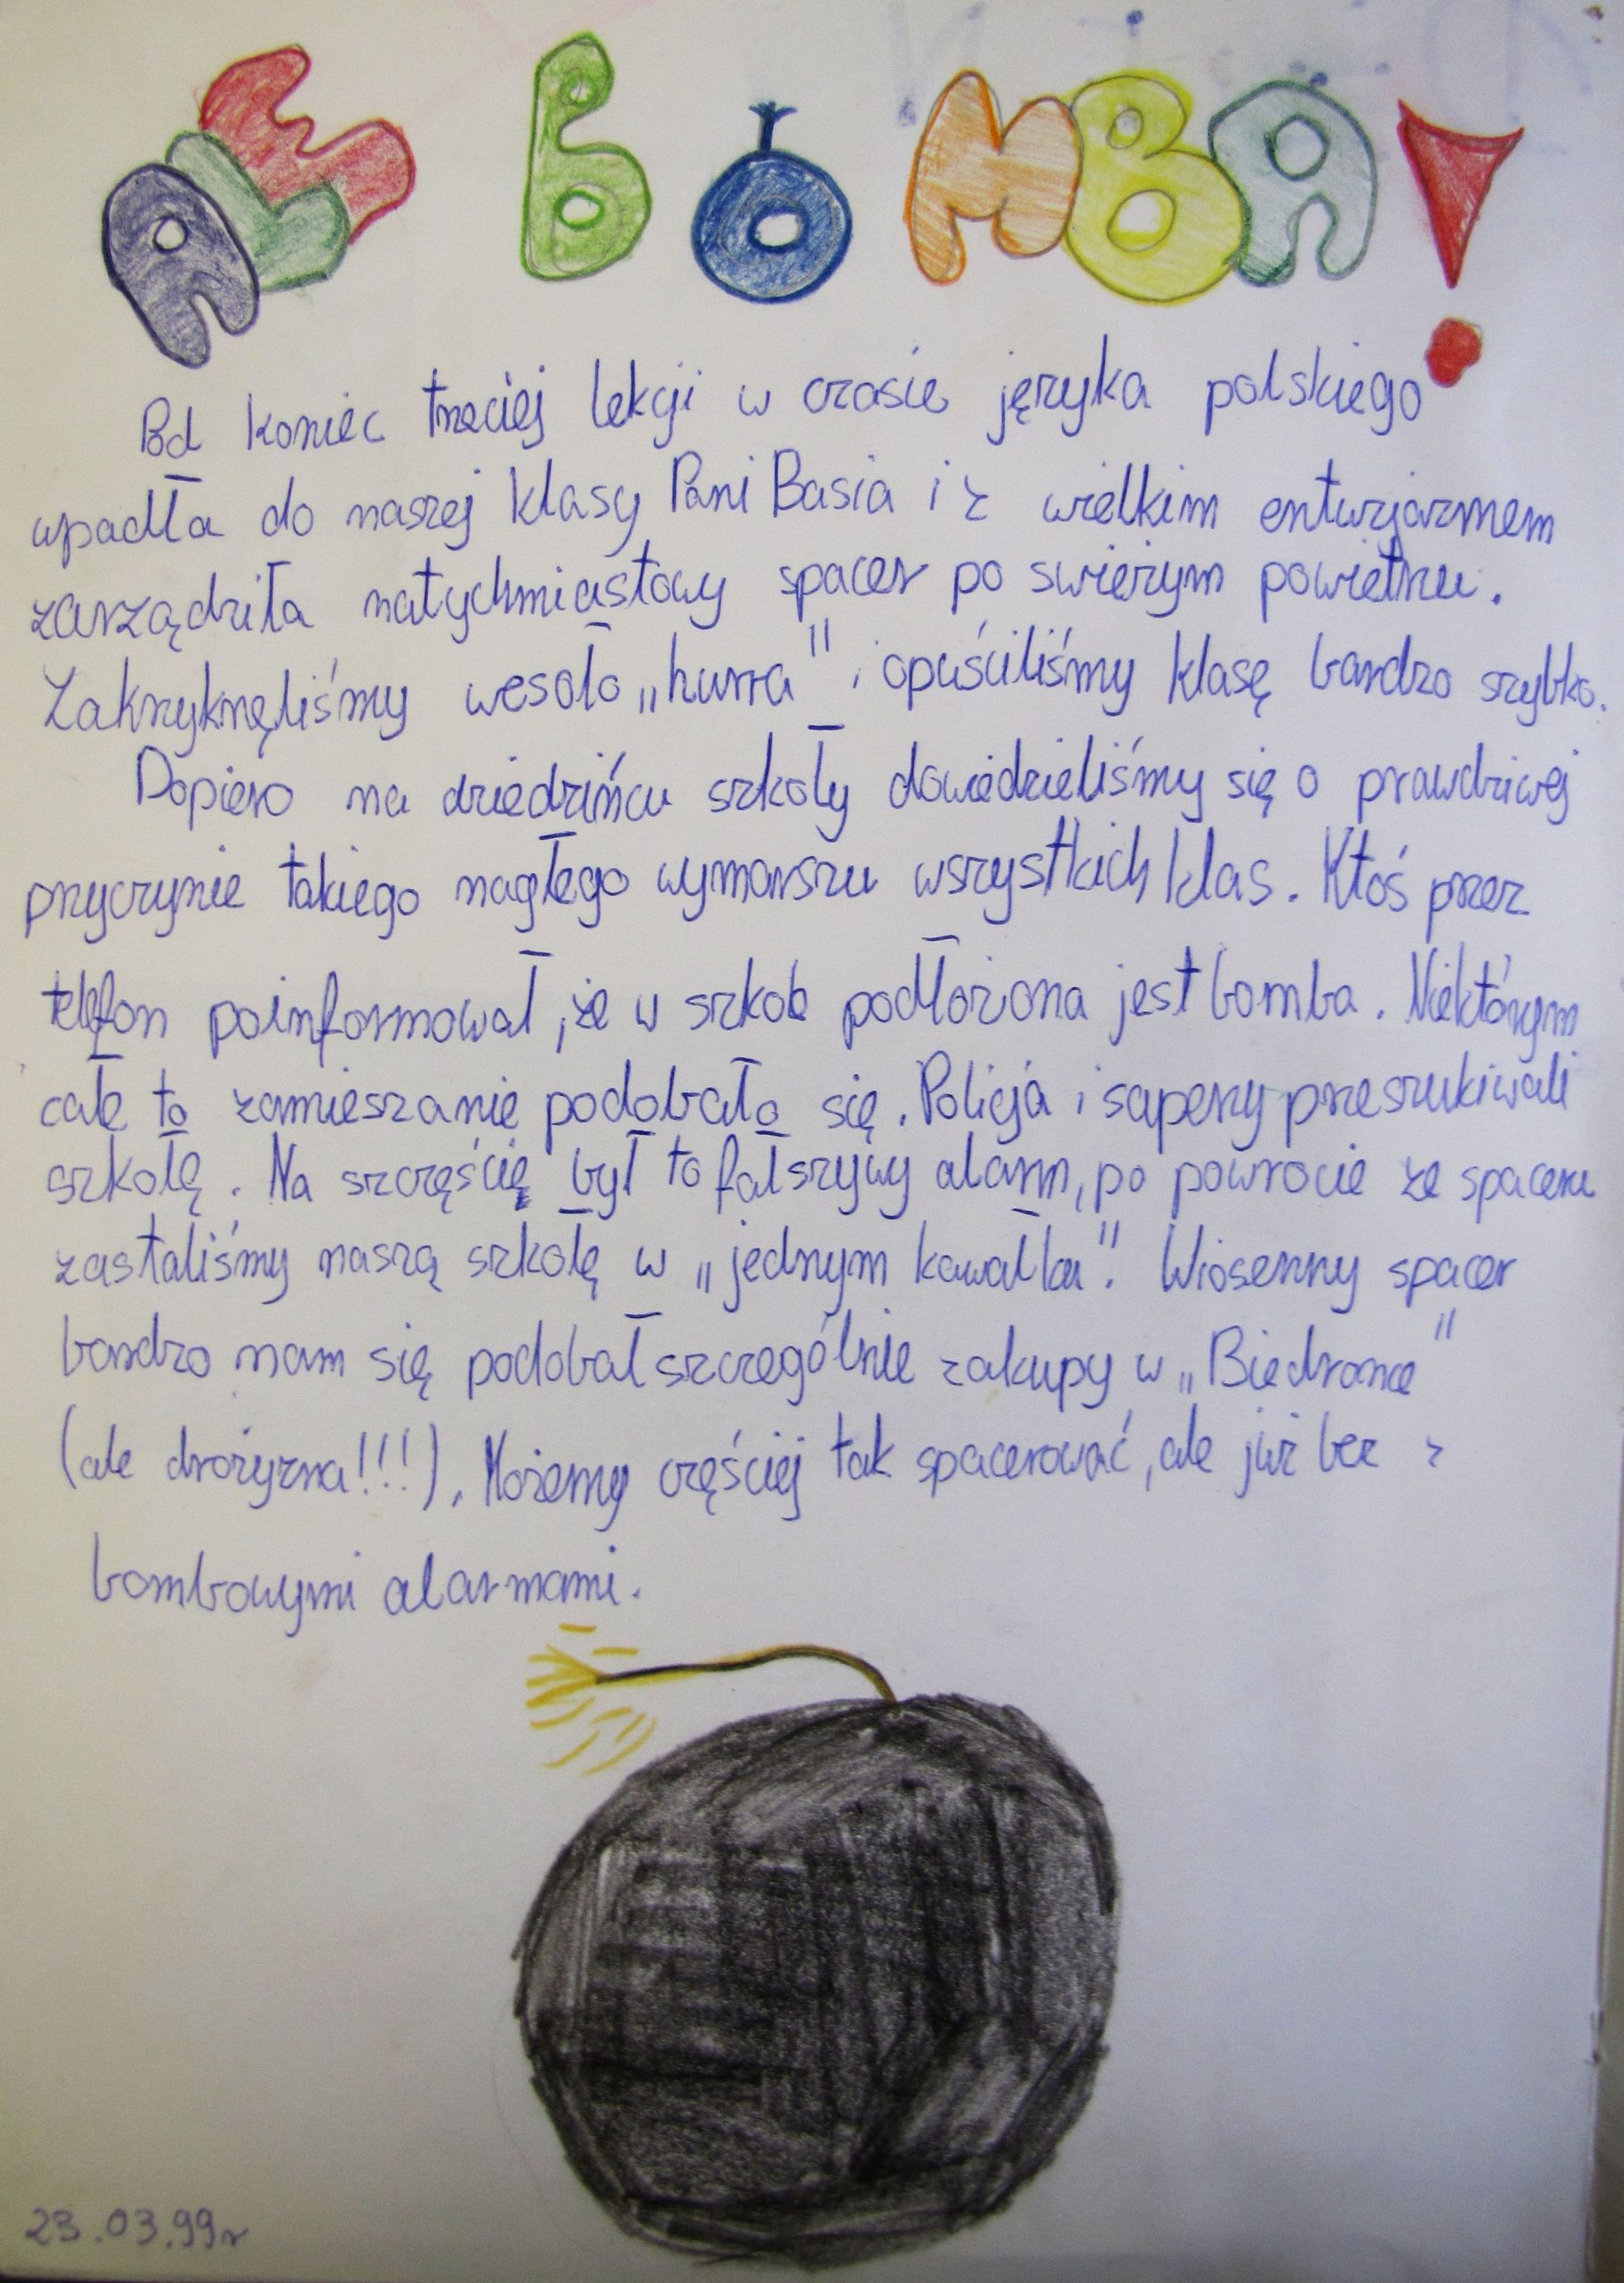 ALE BOMBA!
Pod koniec trzeciej lekcji w czasie języka polskiego
wpadła do naszej klasy Pani Basia i z wielkim entuzjazmem
zarządziła natychmiastowy spacer po swieżym powietrzu.
Zakrzyknęliśmy wesoło „hurra" i opuściliśmy klasę bardzo szybko.
Dopiero na dziedzińcu szkoły dowiedzieliśmy się o prawdziwej
przyczynie takiego nagłego wymarszu wszystkich klas. Ktoś przez
telefon poinformował, że w szkole podłożona jest bomba. Niektórym
całe to zamieszanie podobało się. Policja i saperzy przeszukiwali
szkołę. Na szczęście był to fałszywy alarm, po powrocie ze spaceru
zastaliśmy naszą szkołę w „jednym kawałku". Wiosenny spacer
bardzo nam się podobał szczególnie zakupy w „Biedronce"
(ale drożyzna!!!). Możemy częściej tak spacerować, ale już bez z
bombowymi alarmami.
23.03.99r